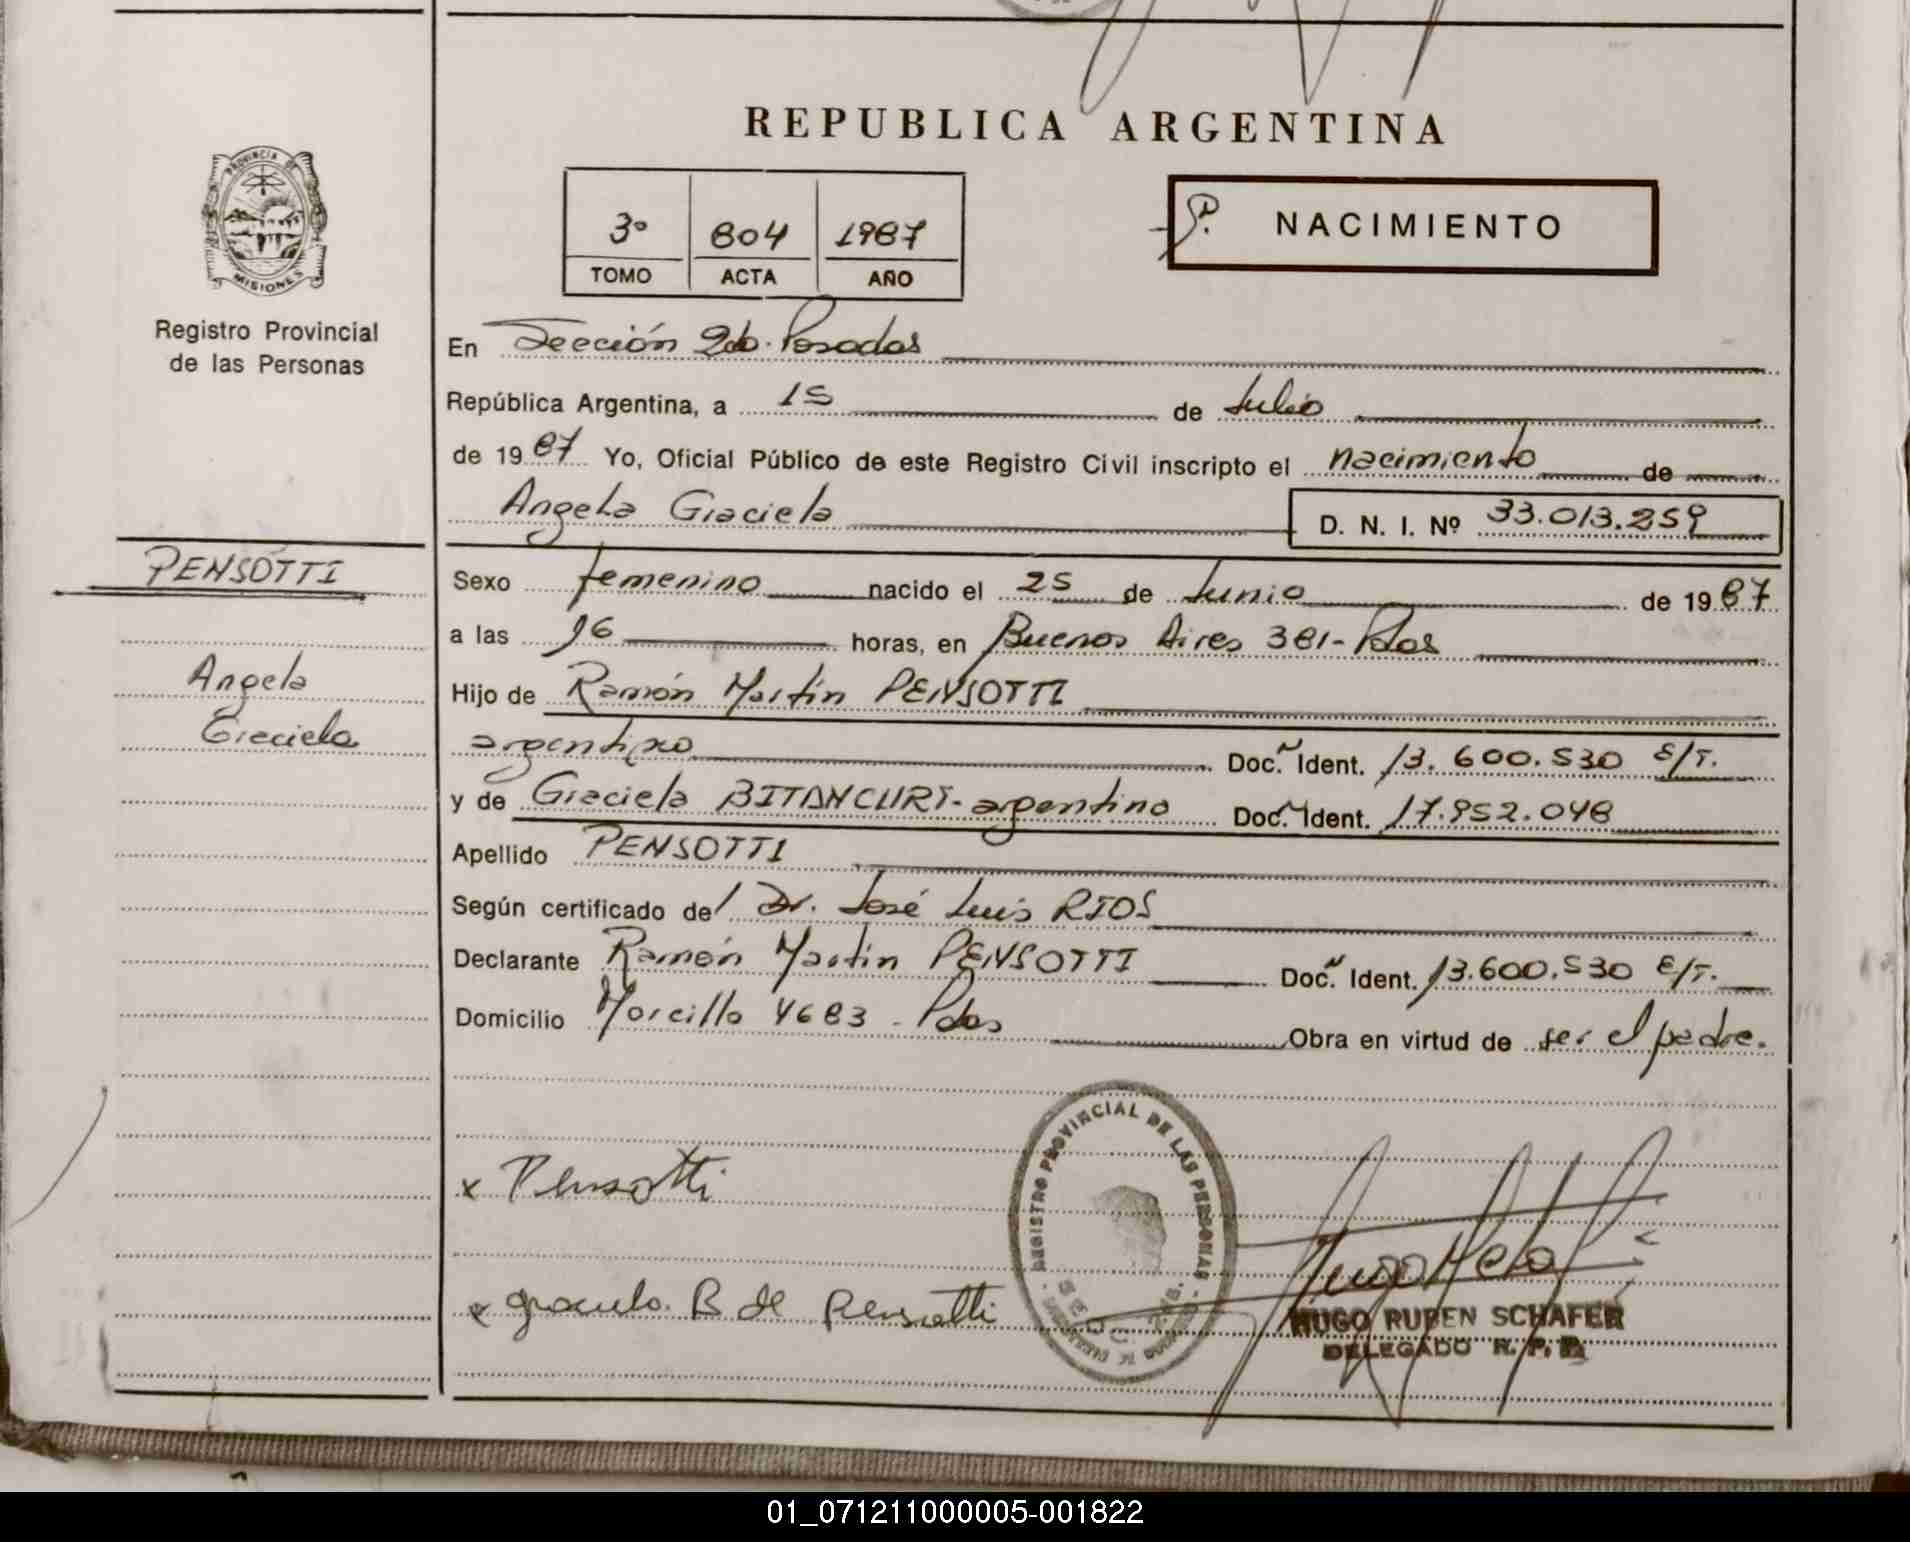 REPUBLICA ARGENTINA
PROVINCIA DE
MISIONES
Registro Provincial
de las Personas
3º 804 1987
TOMO ACTA AÑO
NACIMIENTO
En Sección 2da. Posadas
República Argentina, a 15 de Julio
de 1987 Yo, Oficial Público de este Registro Civil inscripto el nacimiento de
Angela Graciela D. N. I. Nº 33.013.259
PENSOTTI
Angela
Graciela
Sexo femenino nacido el 25 de Junio de 1987
a las 16 horas, en Buenos Aires 381- Pdas
Hijo de Ramón Martin PENSOTTI
argentino Doc. Ident. 13.600.530 E/T.
y de Graciela BITANCURT- argentina Doc. Ident. 17.952.048
Apellido PENSOTTI
Según certificado del Dr. José Luis RIOS
Declarante Ramón Martin PENSOTTI Doc. Ident. 13.600.530 E/T.
Domicilio Morcillo 4683 - Pdas Obra en virtud de ser el padre.
REGISTRO PROVINCIAL DE LAS PERSONAS
x Pensotti
x Graciela B de Pensotti
HUGO RUBEN SCHAFER
DELEGADO R. P. P.
01_071211000005-001822